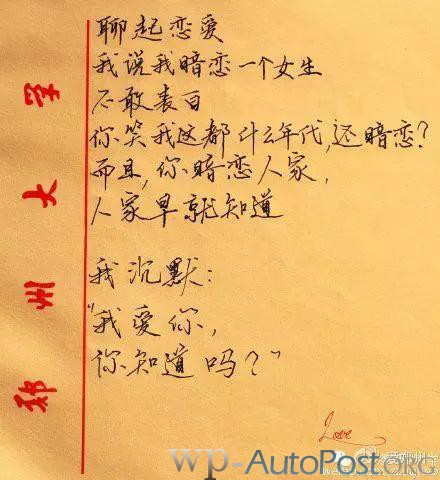 聊起恋爱
我说我暗恋一个女生
不敢表白
你笑我这都什么年代,还暗恋?
而且,你暗恋人家,
人家早就知道
我沉默:
"我爱你,
你知道吗?"
郑州大学
Love
wp-AutoPost.ORG